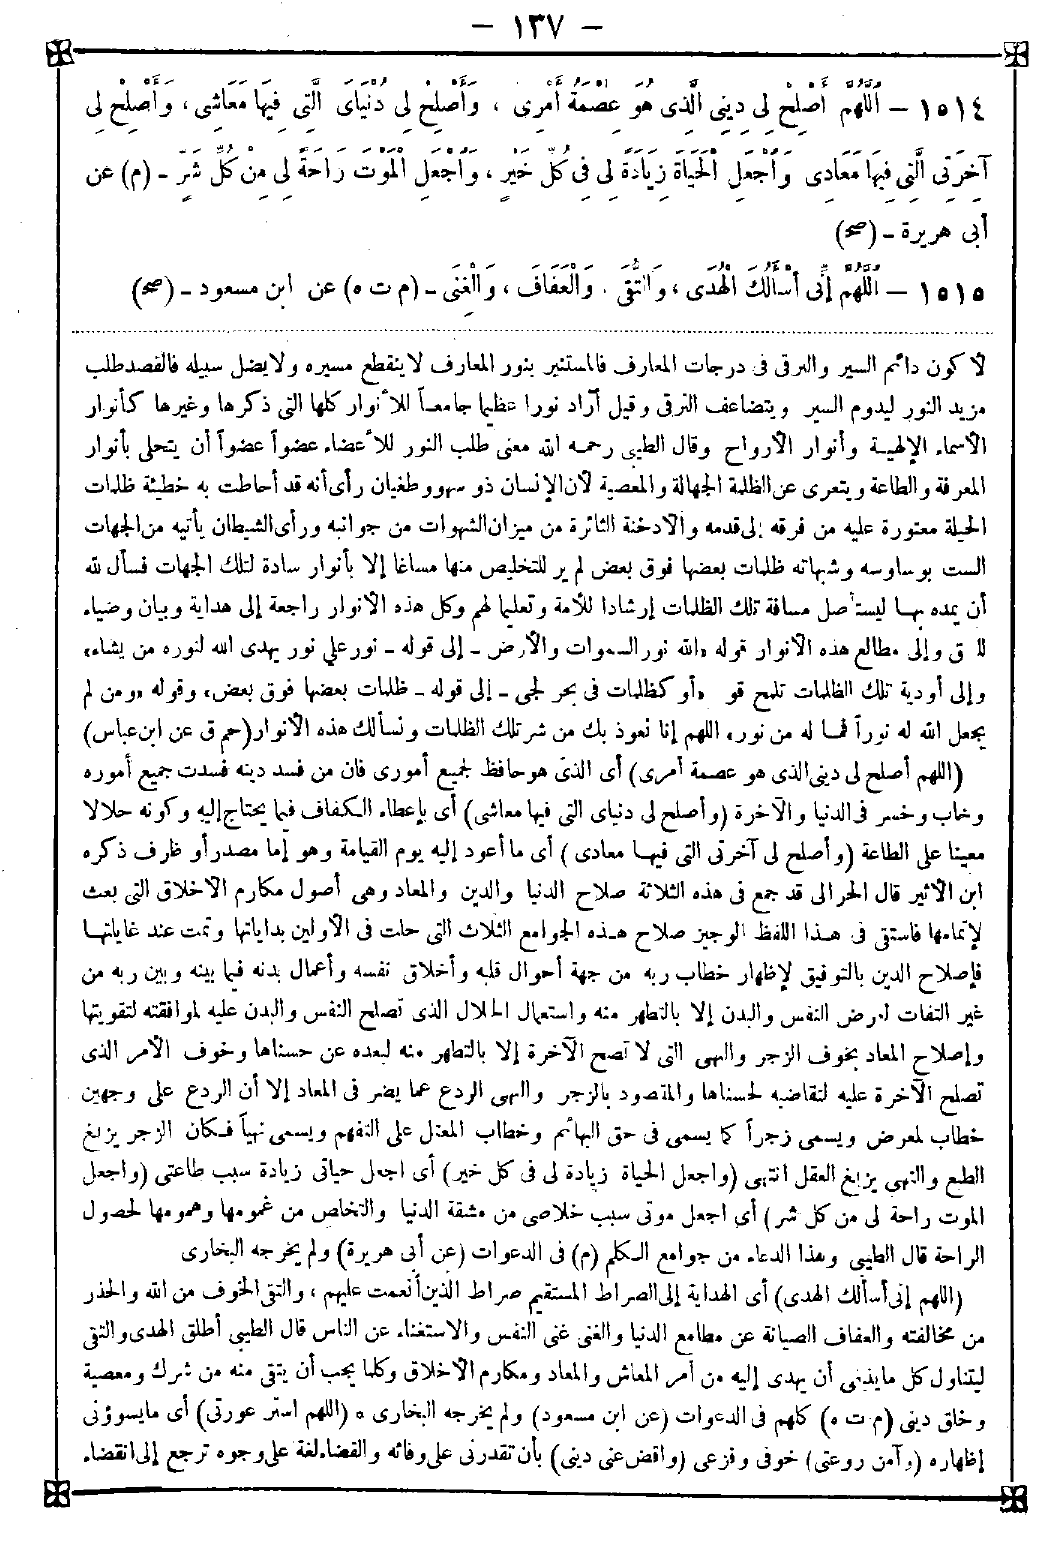 – ١٣٧ –
١٥١٤ – اَللّٰهُمَّ أَصْلِحْ لِي دِينِيَ الَّذِى هُوَ عِصْمَةُ أَمْرِى ، وَأَصْلِحْ لِى دُنْيَاىَ الَّتِى فِيهَا مَعَاشِى ، وَأَصْلِحْ لِى
آخِرَتِى الَّتِى فِيهَا مَعَادِى وَاجْعَلِ الْحَيَاةَ زِيَادَةً لِى فِى كُلِّ خَيْرٍ ، وَاجْعَلِ الْمَوْتَ رَاحَةً لِى مِنْ كُلِّ شَرٍّ – (م) عن
أبى هريرة – (صح)
١٥١٥ – اَللّٰهُمَّ إِنِّى أَسْأَلُكَ الْهُدَى ، وَالتُّقَى ، وَالْعَفَافَ ، وَالْغِنَى – (م ت ه) عن ابن مسعود – (صح)
لأكون دائم السير والترقى فى درجات المعارف فالمستنير بنور المعارف لا ينقطع مسيره ولا يضل سبيله فالقصد طلب
مزيد النور ليدوم السير ويتضاعف الترقى وقيل أراد نورا عظيما جامعاً للأنوار كلها التى ذكرها وغيرها كأنوار
الأسماء الإلهية وأنوار الأرواح وقال الطيبى رحمه الله معنى طلب النور للأعضاء عضواً عضواً أن يتحلى بأنوار
المعرفة والطاعة ويتعرى عن الظلمة الجهالة والمعصية لأن الإنسان ذو سهو وطغيان رأى أنه قد أحاطت به خطيئة ظلمات
الجبلة معتورة عليه من فرقه إلى قدمه والأدخنة الثائرة من ميزان الشهوات من جوانبه ورأى الشيطان يأتيه من الجهات
الست بوساوسه وشبهاته ظلمات بعضها فوق بعض لم ير للتخليص منها مساغا إلا بأنوار سادة لتلك الجهات فسأل لله
أن يمده بها ليستأصل مسافة تلك الظلمات إرشادا للأمة وتعليما لهم وكل هذه الأنوار راجعة إلى هداية وبيان وضياء
للحق وإلى مطالع هذه الأنوار قوله «الله نور السموات والأرض – إلى قوله – نور على نور يهدى الله لنوره من يشاء»
وإلى أودية تلك الظلمات تلمح قو «أو كظلمات فى بحر لجى – إلى قوله – ظلمات بعضها فوق بعض» وقوله «ومن لم
يجعل الله له نوراً فما له من نور» اللهم إنا نعوذ بك من شر تلك الظلمات ونسألك هذه الأنوار (حم ق عن ابن عباس)
(اللهم أصلح لى دينى الذى هو عصمة أمرى) أى الذى هو حافظ لجميع أمورى فان من فسد دينه فسدت جميع أموره
وخاب وخسر فى الدنيا والآخرة (وأصلح لى دنياى التى فيها معاشى) أى بإعطاء الكفاف فيما يحتاج إليه وكونه حلالا
معينا على الطاعة (وأصلح لى آخرتى التى فيها معادى) أى ما أعود إليه يوم القيامة وهو إما مصدر أو ظرف ذكره
ابن الأثير قال الحرالى قد جمع فى هذه الثلاثة صلاح الدنيا والدين والمعاد وهى أصول مكارم الأخلاق التى بعث
لإتمامها فاستقى فى هذا اللفظ الوجيز صلاح هذه الجوامع الثلاث التى حلت فى الأولين بداياتها وتمت عند غاياتها
فإصلاح الدين بالتوفيق لإظهار خطاب ربه من جهة أحوال قلبه وأخلاق نفسه وأعمال بدنه فيما بينه وبين ربه من
غير التفات لعرض النفس والبدن إلا بالتطهر منه واستعمال الحلال الذى تصلح النفس والبدن عليه لموافقته لتقويتها
وإصلاح المعاد بخوف الزجر والنهى التى لا تصح الآخرة إلا بالتطهر منه لبعده عن حسناها وخوف الأمر الذى
تصلح الآخرة عليه لتقاضيه لحسناها والمقصود بالزجر والنهى الردع عما يضر فى المعاد إلا أن الردع على وجهين
خطاب لمعرض ويسمى زجراً كما يسمى فى حق البهائم وخطاب المقبل على التفهم ويسمى نهياً فكان الزجر يزيغ
الطبع والنهى يزيغ العقل انتهى (واجعل الحياة زيادة لى فى كل خير) أى اجعل حياتى زيادة سبب طاعتى (واجعل
الموت راحة لى من كل شر) أى اجعل موتى سبب خلاصى من مشقة الدنيا والتخلص من غمومها وهمومها لحصول
الراحة قال الطيبى وهذا الدعاء من جوامع الكلم (م) فى الدعوات (عن أبى هريرة) ولم يخرجه البخارى
(اللهم إنى أسألك الهدى) أى الهداية إلى الصراط المستقيم صراط الذين أنعمت عليهم ، والتقى الخوف من الله والحذر
من مخالفته والعفاف الصيانة عن مطامع الدنيا والغنى غنى النفس والاستغناء عن الناس قال الطيبى أطلق الهدى والتقى
ليتناول كل ما ينبغى أن يهدى إليه من أمر المعاش والمعاد ومكارم الأخلاق وكلما يجب أن يتقى منه من شرك ومعصية
وخلق دينى (م ت ه) كلهم فى الدعوات (عن ابن مسعود) ولم يخرجه البخارى ه (اللهم استر عورتى) أى ما يسوؤنى
إظهاره (وآمن روعتى) خوفى وفزعى (واقض عنى دينى) بأن تقدرنى على وفائه والقضاء لغة على وجوه ترجع إلى انقضاء